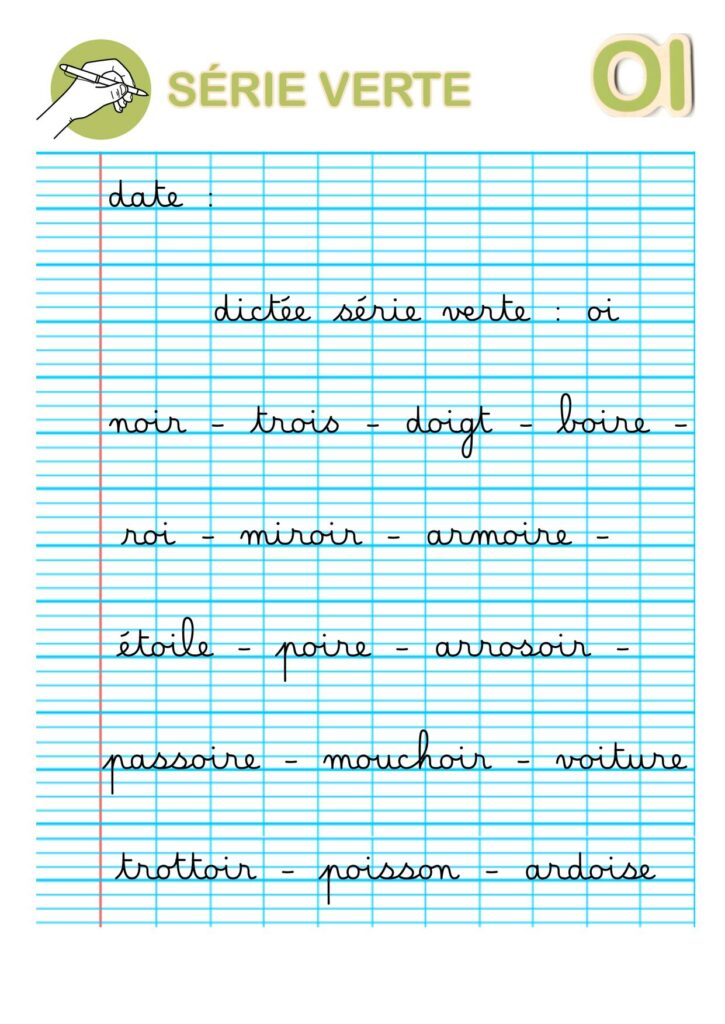 SÉRIE VERTE
OI
date :
dictée série verte : oi
noir - trois - doigt - boire -
roi - miroir - armoire -
étoile - poire - arrosoir -
passoire - mouchoir - voiture
trottoir - poisson - ardoise